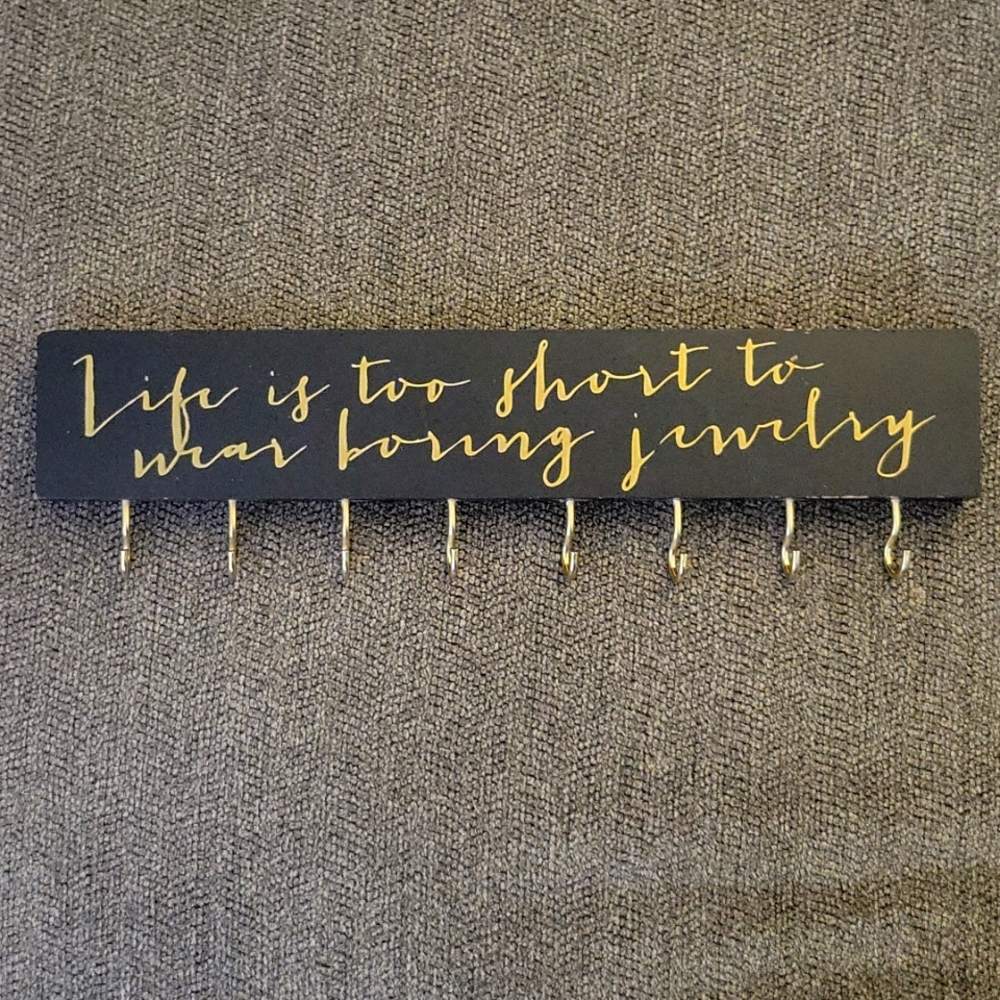 Life is too short to
wear boring jewelry